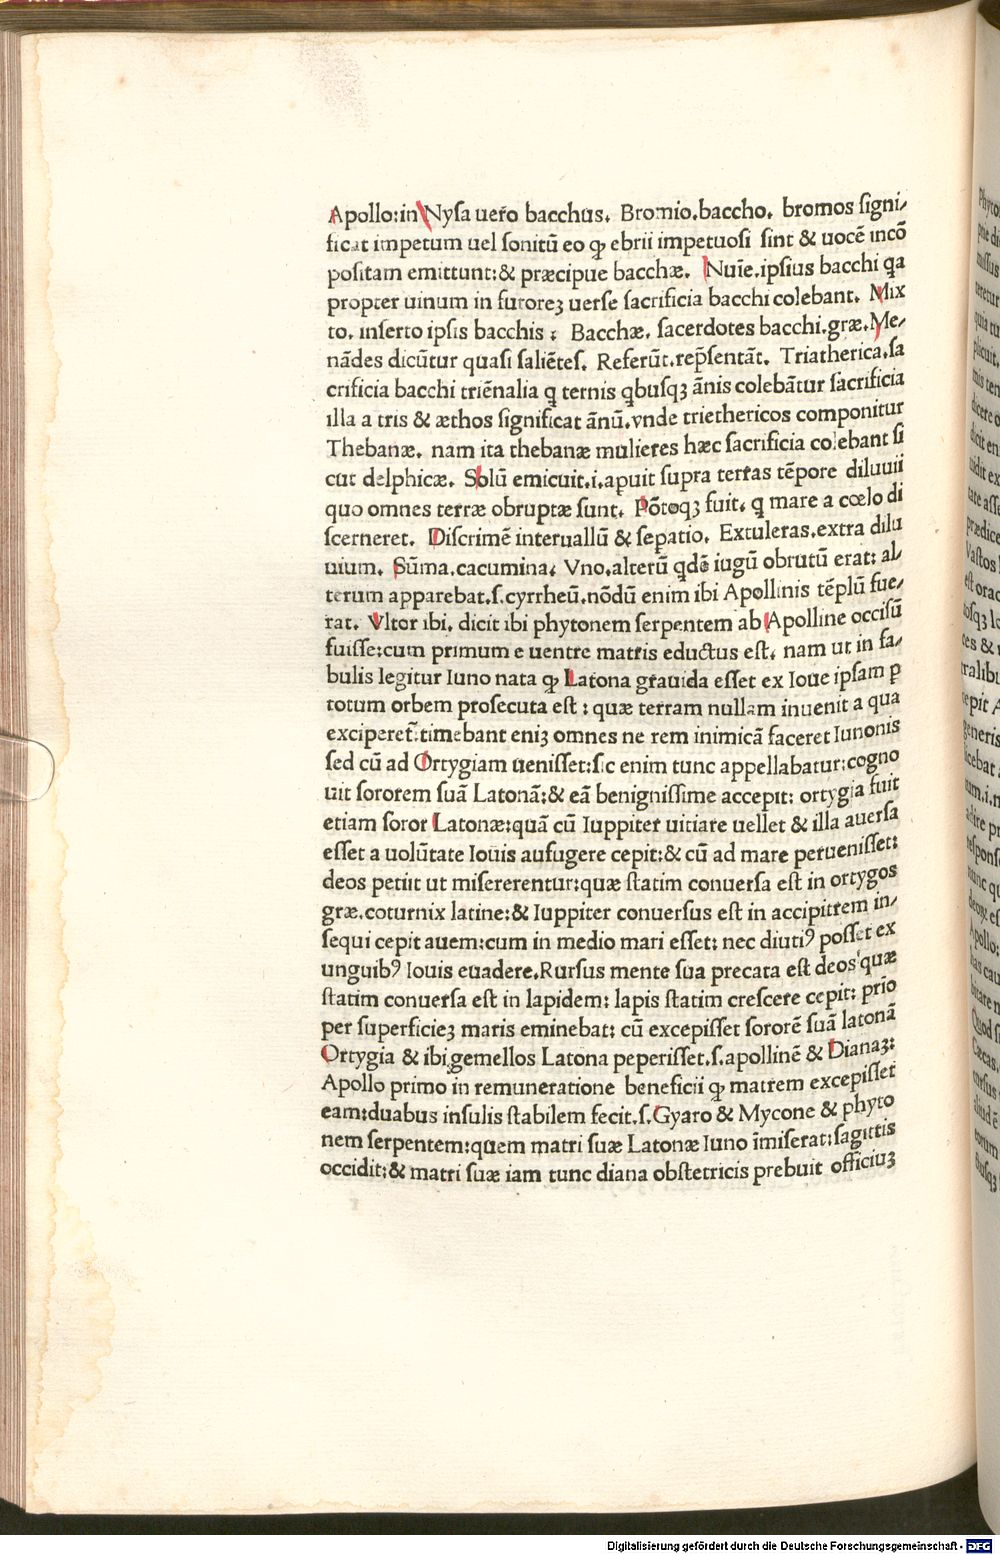 Apollo:in Nyſa uero bacchus. Bromio.baccho. bromos ſigni/
ficat impetum uel ſonitū eo ꝙ ebrii impetuoſi ſint & uocē incō
poſitam emittunt:& præcipue bacchæ. Nuīe.ipſius bacchi qa
propter uinum in furoreʒ uerſe ſacrificia bacchi colebant. Mix
to. inſerto ipſis bacchis : Bacchæ. ſacerdotes bacchi.græ.Me/
nādes dicūtur quaſi ſaliētes. Referūt.rep̄ſentāt. Triatherica.ſa
crificia bacchi triēnalia q ternis qbuſqʒ ānis colebātur ſacrificia
illa a tris & æthos ſignificat ānū.vnde triethericos componitur
Thebanæ. nam ita thebanæ mulieres hæc ſacrificia colebant ſi
cut delphicæ. Solū emicuit.i.apuit ſupra terras tēpore diluuii
quo omnes terræ obruptæ ſunt. Pōtoqʒ fuit. q mare a cœlo di
ſcerneret. Diſcrimē interuallū & ſepatio. Extuleras.extra dilu
uium. Sūma.cacumina. Vno.alterū qdē iugū obrutū erat: al/
terum apparebat.ſ.cyrrheū.nōdū enim ibi Apollinis tēplū fue/
rat. Vltor ibi. dicit ibi phytonem ſerpentem ab Apolline occiſū
fuiſſe:cum primum e uentre matris eductus eſt. nam ut in fa/
bulis legitur Iuno nata ꝙ Latona grauida eſſet ex Ioue ipſam ꝑ
totum orbem proſecuta eſt : quæ terram nullam inuenit a qua
exciperet̄:timebant eniʒ omnes ne rem inimicā faceret Iunonis
ſed cū ad Ortygiam ueniſſet:ſic enim tunc appellabatur:cogno
uit ſororem ſuā Latonā:& eā benigniſſime accepit: ortygia fuit
etiam ſoror Latonæ:quā cū Iuppiter uitiare uellet & illa auerſa
eſſet a uolūtate Iouis aufugere cepit:& cū ad mare perueniſſet:
deos petiit ut miſererentur:quæ ſtatim conuerſa eſt in ortygos
græ.coturnix latine:& Iuppiter conuerſus eſt in accipitrem in/
ſequi cepit auem:cum in medio mari eſſet: nec diutiꝰ poſſet ex
unguibꝰ Iouis euadere.Rurſus mente ſua precata eſt deos quæ
ſtatim conuerſa eſt in lapidem: lapis ſtatim creſcere cepit: prio
per ſuperficieʒ maris eminebat: cū excepiſſet ſororē ſuā latonā
Ortygia & ibi gemellos Latona peperiſſet.ſ.apollinē & Dianaʒ:
Apollo primo in remuneratione beneficii ꝙ matrem excepiſſet
eam:duabus inſulis ſtabilem fecit.ſ.Gyaro & Mycone & phyto
nem ſerpentem:quem matri ſuæ Latonæ Iuno īmiſerat:ſagittis
occidit:& matri ſuæ iam tunc diana obſtetricis prebuit officiuʒ
Digitalisierung gefördert durch die Deutsche Forschungsgemeinschaft - DFG